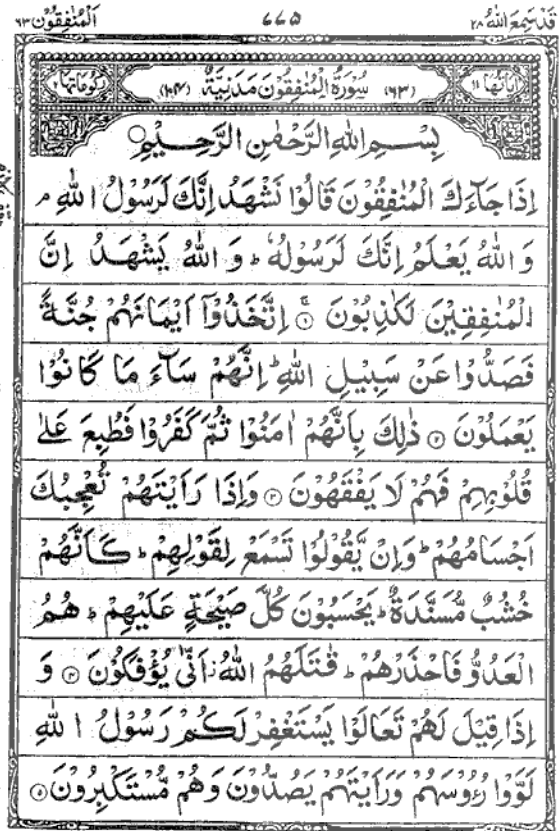 قَدْ سَمِعَ اللّٰهُ ٢٨ ٧٧٥ اَلْمُنٰفِقُوْنَ ٦٣
اٰيَاتُهَا ١١ (٦٣) سُوْرَةُ الْمُنٰفِقُوْنَ مَدَنِيَّةٌ (١٠٤) رُكُوْعَاتُهَا ٢
بِسْمِ اللّٰهِ الرَّحْمٰنِ الرَّحِيْمِ
اِذَا جَآءَكَ الْمُنٰفِقُوْنَ قَالُوْا نَشْهَدُ اِنَّكَ لَرَسُوْلُ اللّٰهِ م
وَ اللّٰهُ يَعْلَمُ اِنَّكَ لَرَسُوْلُهٗ ؕ وَ اللّٰهُ يَشْهَدُ اِنَّ
الْمُنٰفِقِيْنَ لَكٰذِبُوْنَ ۚ ١ اِتَّخَذُوْٓا اَيْمَانَهُمْ جُنَّةً
فَصَدُّوْا عَنْ سَبِيْلِ اللّٰهِ ؕ اِنَّهُمْ سَآءَ مَا كَانُوْا
يَعْمَلُوْنَ ٢ ذٰلِكَ بِاَنَّهُمْ اٰمَنُوْا ثُمَّ كَفَرُوْا فَطُبِعَ عَلٰى
قُلُوْبِهِمْ فَهُمْ لَا يَفْقَهُوْنَ ٣ وَاِذَا رَاَيْتَهُمْ تُعْجِبُكَ
اَجْسَامُهُمْ ؕ وَاِنْ يَّقُوْلُوْا تَسْمَعْ لِقَوْلِهِمْ ؕ كَاَنَّهُمْ
خُشُبٌ مُّسَنَّدَةٌ ؕ يَحْسَبُوْنَ كُلَّ صَيْحَةٍ عَلَيْهِمْ ؕ هُمُ
الْعَدُوُّ فَاحْذَرْهُمْ ؕ قٰتَلَهُمُ اللّٰهُ ز اَنّٰى يُؤْفَكُوْنَ ٤ وَ
اِذَا قِيْلَ لَهُمْ تَعَالَوْا يَسْتَغْفِرْ لَكُمْ رَسُوْلُ اللّٰهِ
لَوَّوْا رُءُوْسَهُمْ وَرَاَيْتَهُمْ يَصُدُّوْنَ وَهُمْ مُّسْتَكْبِرُوْنَ ٥